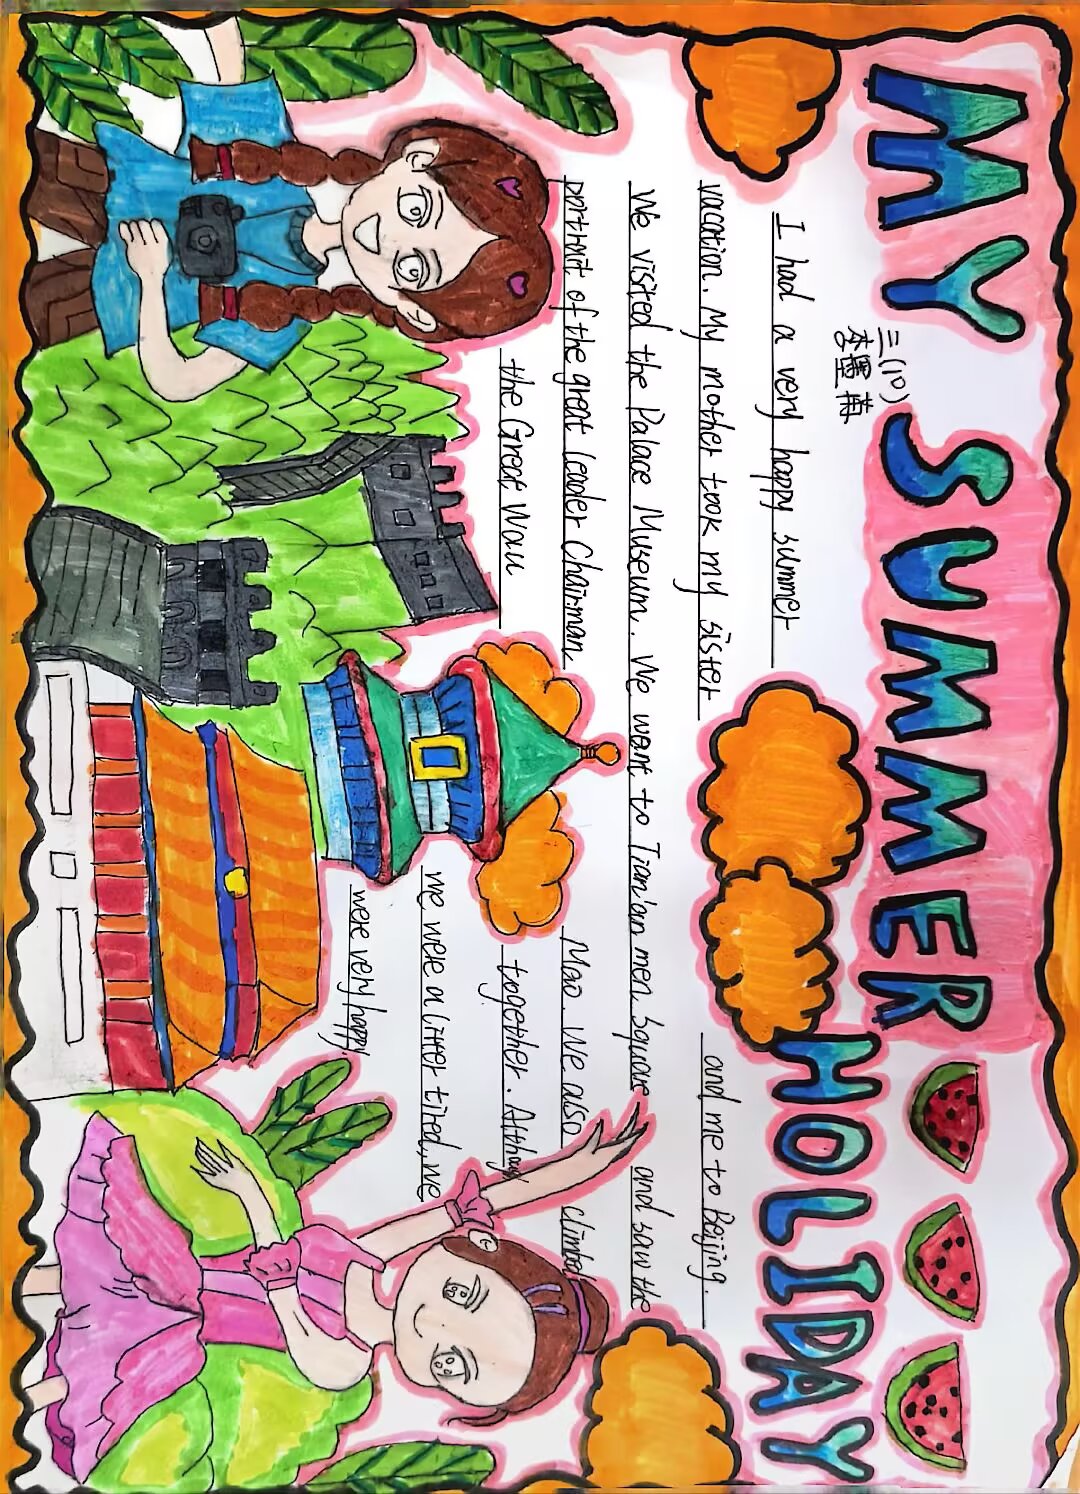 MY SUMMER HOLIDAY
三(10)
I had a very happy summer
vacation. My mother took my sister and me to Beijing.
We visited the Palace Museum. We want to Tian'an men Square and saw the
portrait of the great leader Chairman Mao. We also climbed
the Great Wall together. Although
we were a litter tired, we
were very happy.